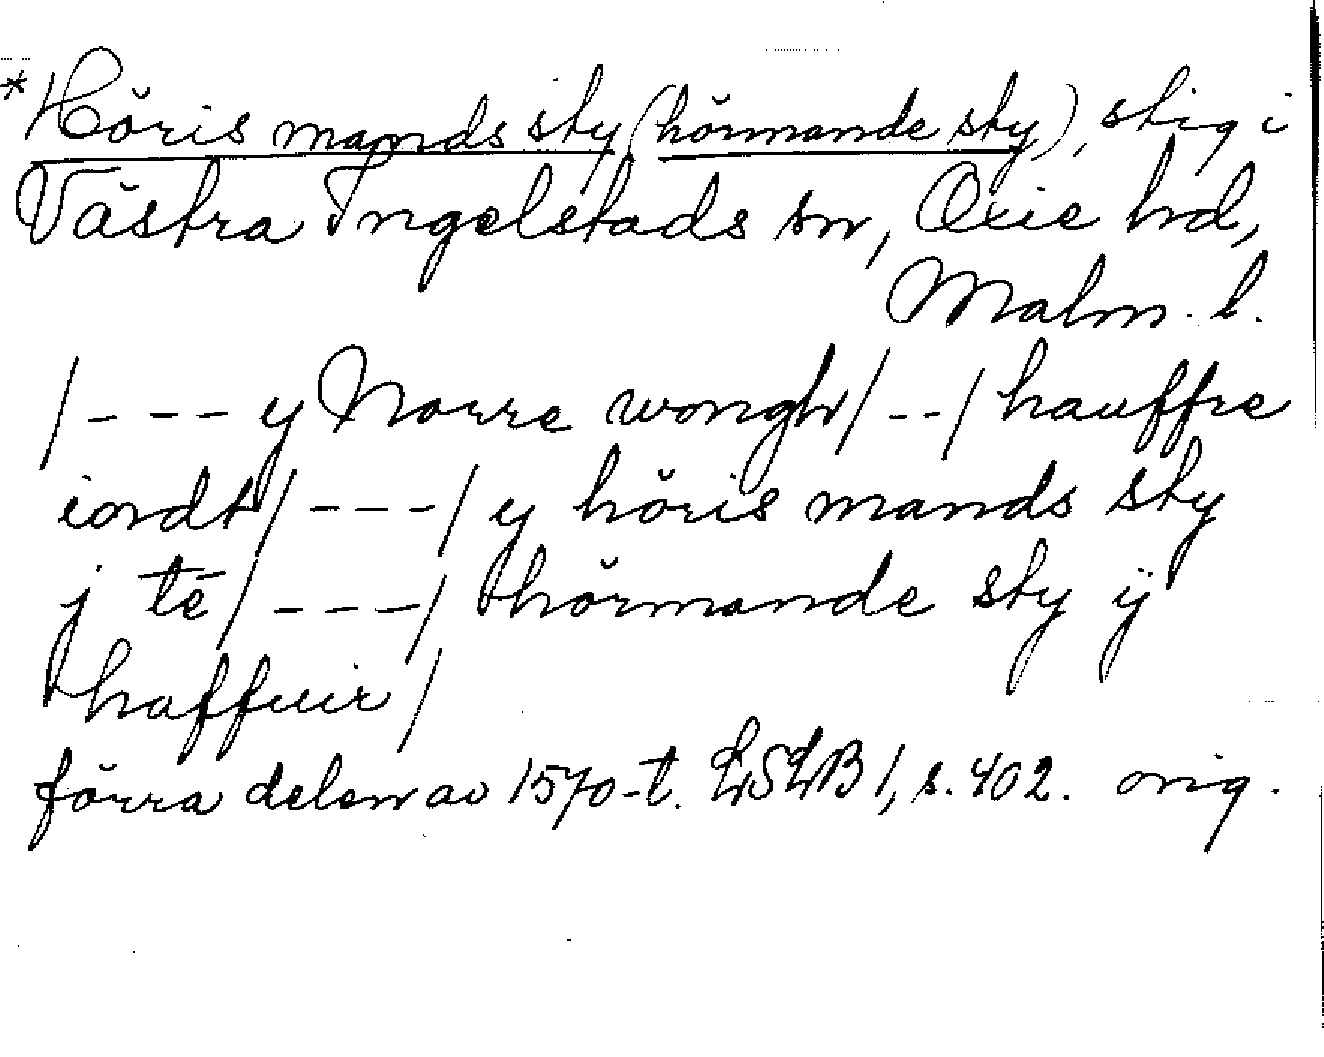 *Höris mands sty (hörmande sty), stig i
Västra Ingelstads sn, Oxie hd,
Malm. l.
/--- y Norre wongh/--/hauffre
iordt/---/ y höris mands sty
j tē/---/ hörmande sty ÿ
haffuir/
förra delen av 1570-t. LSLB 1, s. 402. orig.